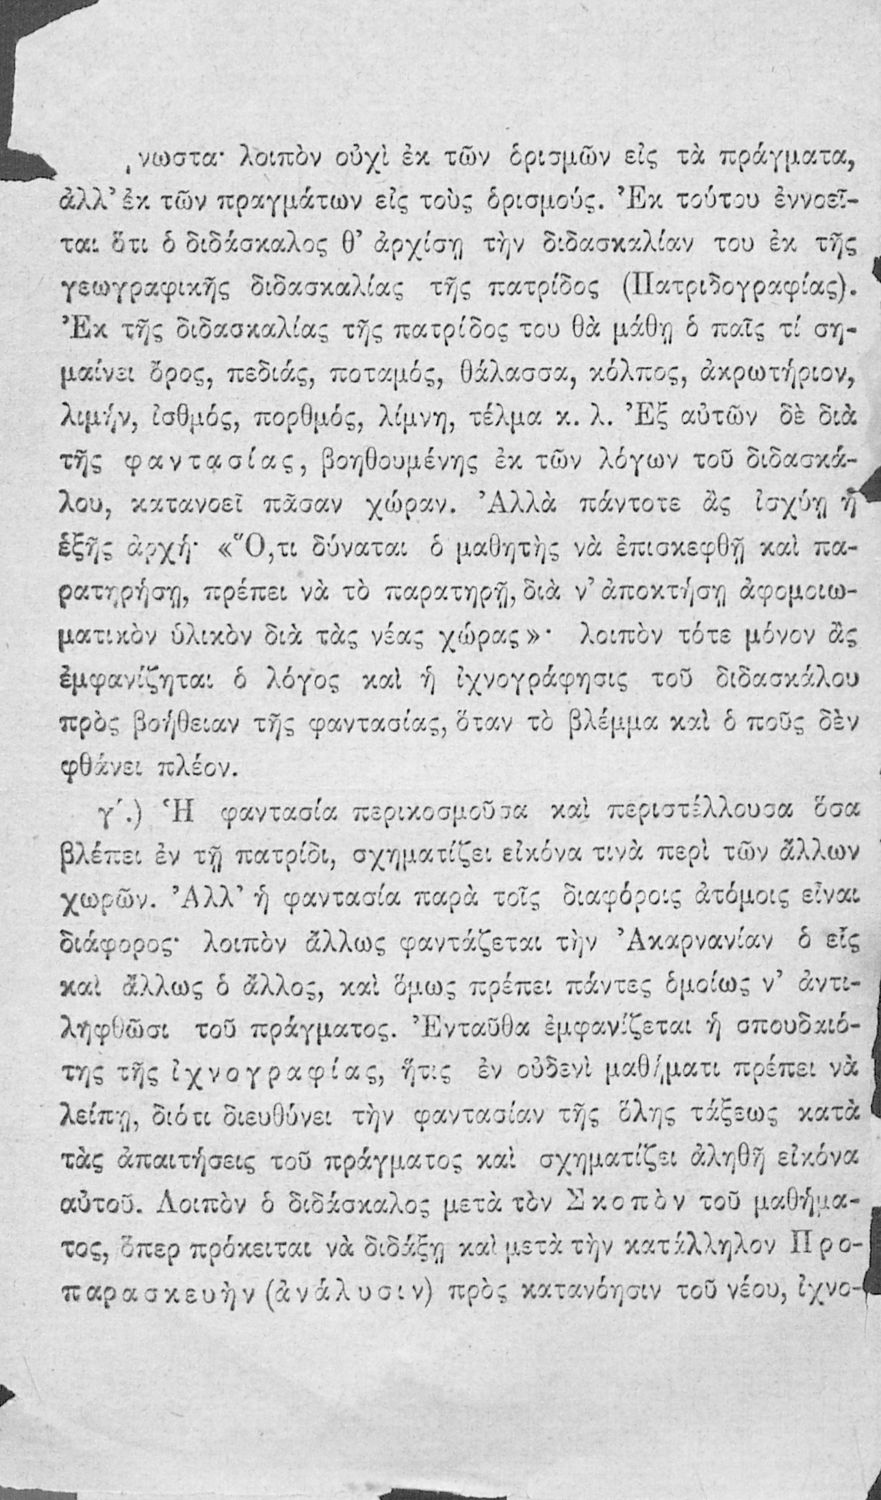 νωστα· λοιπὸν οὐχὶ ἐκ τῶν ὁρισμῶν εἰς τὰ πράγματα,
ἀλλ’ ἐκ τῶν πραγμάτων εἰς τοὺς ὁρισμούς. Ἐκ τούτου ἐννοεῖ-
ται ὅτι ὁ διδάσκαλος θ’ ἀρχίσῃ τὴν διδασκαλίαν του ἐκ τῆς
γεωγραφικῆς διδασκαλίας τῆς πατρίδος (Πατριδογραφίας).
Ἐκ τῆς διδασκαλίας τῆς πατρίδος του θὰ μάθῃ ὁ παῖς τί ση-
μαίνει ὄρος, πεδιάς, ποταμός, θάλασσα, κόλπος, ἀκρωτήριον,
λιμήν, ἰσθμός, πορθμός, λίμνη, τέλμα κ. λ. Ἐξ αὐτῶν δὲ διὰ
τῆς φαντασίας, βοηθουμένης ἐκ τῶν λόγων τοῦ διδασκά-
λου, κατανοεῖ πᾶσαν χώραν. Ἀλλὰ πάντοτε ἂς ἰσχύῃ ἡ
ἑξῆς ἀρχή· «Ὅ,τι δύναται ὁ μαθητὴς νὰ ἐπισκεφθῇ καὶ πα-
ρατηρήσῃ, πρέπει νὰ τὸ παρατηρῇ, διὰ ν’ ἀποκτήσῃ ἀφομοιω-
ματικὸν ὑλικὸν διὰ τὰς νέας χώρας»· λοιπὸν τότε μόνον ἂς
ἐμφανίζηται ὁ λόγος καὶ ἡ ἰχνογράφησις τοῦ διδασκάλου
πρὸς βοήθειαν τῆς φαντασίας, ὅταν τὸ βλέμμα καὶ ὁ ποῦς δὲν
φθάνει πλέον.
γ΄.) Ἡ φαντασία περικοσμοῦσα καὶ περιστέλλουσα ὅσα
βλέπει ἐν τῇ πατρίδι, σχηματίζει εἰκόνα τινὰ περὶ τῶν ἄλλων
χωρῶν. Ἀλλ’ ἡ φαντασία παρὰ τοῖς διαφόροις ἀτόμοις εἶναι
διάφορος· λοιπὸν ἄλλως φαντάζεται τὴν Ἀκαρνανίαν ὁ εἷς
καὶ ἄλλως ὁ ἄλλος, καὶ ὅμως πρέπει πάντες ὁμοίως ν’ ἀντι-
ληφθῶσι τοῦ πράγματος. Ἐνταῦθα ἐμφανίζεται ἡ σπουδαιό-
της τῆς ἰχνογραφίας, ἥτις ἐν οὐδενὶ μαθήματι πρέπει νὰ
λείπῃ, διότι διευθύνει τὴν φαντασίαν τῆς ὅλης τάξεως κατὰ
τὰς ἀπαιτήσεις τοῦ πράγματος καὶ σχηματίζει ἀληθῆ εἰκόνα
αὐτοῦ. Λοιπὸν ὁ διδάσκαλος μετὰ τὸν Σκοπὸν τοῦ μαθήμα-
τος, ὅπερ πρόκειται νὰ διδάξῃ καὶ μετὰ τὴν κατάλληλον Προ-
παρασκευὴν (ἀνάλυσιν) πρὸς κατανόησιν τοῦ νέου, ἰχνο-